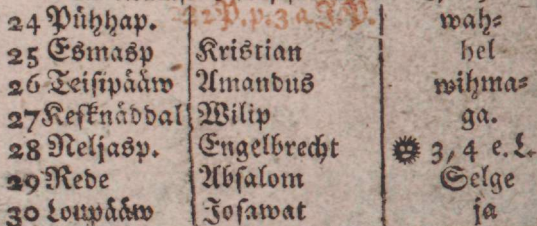 24 Pühhap. 22 P. p. 3 a. J. P. wah⸗
25 Esmasp Kristian hel
26 Teisipääw Amandus wihma⸗
27 Kesknäddal Wilip ga.
28 Neljasp. Engelbrecht 3, 4 e. L.
29 Rede Absalom Selge
30 Loupääw Josawat ja